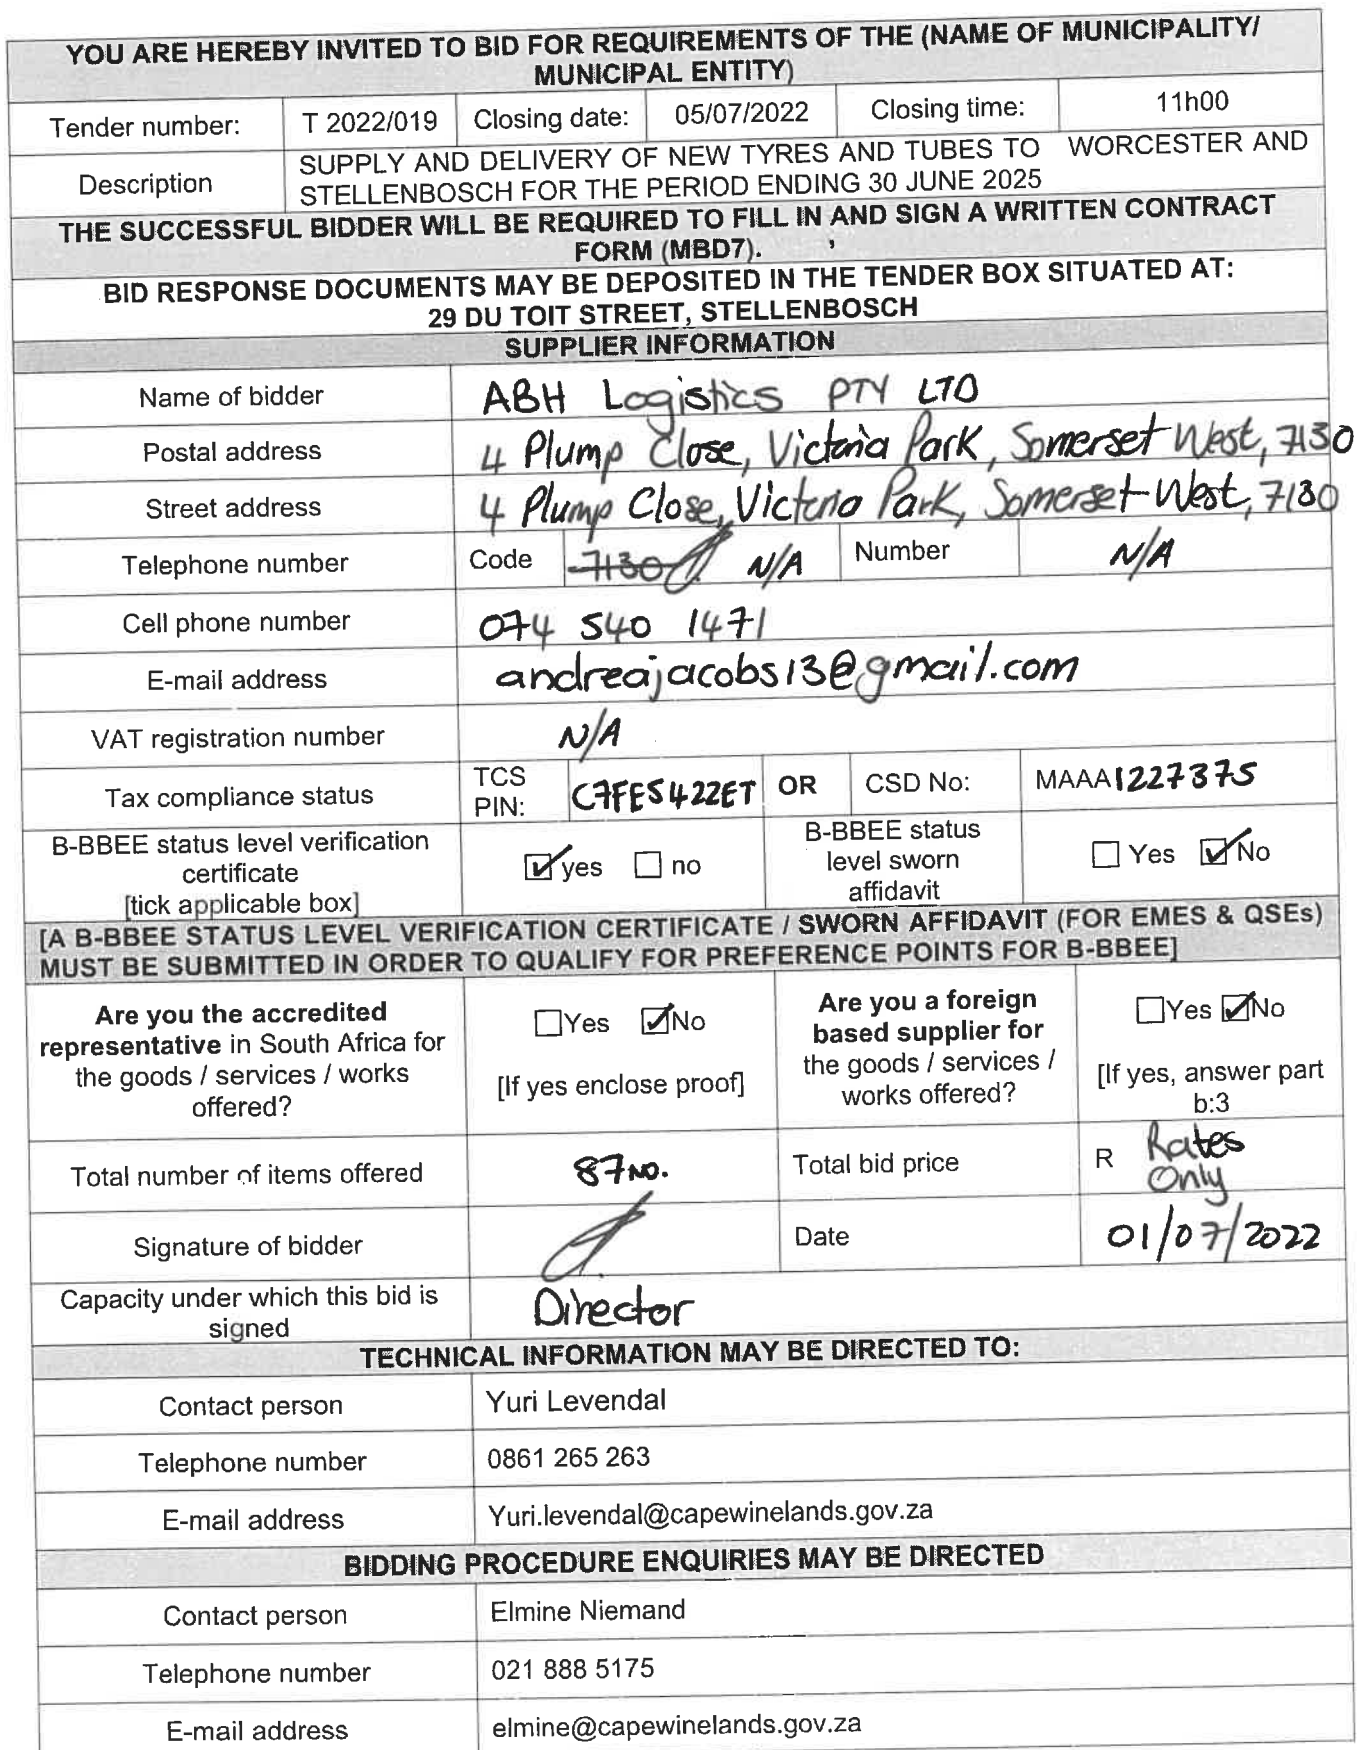 YOU ARE HEREBY INVITED TO BID FOR REQUIREMENTS OF THE (NAME OF MUNICIPALITY/
MUNICIPAL ENTITY)
Tender number: T 2022/019 Closing date: 05/07/2022 Closing time: 11h00
Description SUPPLY AND DELIVERY OF NEW TYRES AND TUBES TO WORCESTER AND
STELLENBOSCH FOR THE PERIOD ENDING 30 JUNE 2025
THE SUCCESSFUL BIDDER WILL BE REQUIRED TO FILL IN AND SIGN A WRITTEN CONTRACT
FORM (MBD7).
BID RESPONSE DOCUMENTS MAY BE DEPOSITED IN THE TENDER BOX SITUATED AT:
29 DU TOIT STREET, STELLENBOSCH
SUPPLIER INFORMATION
Name of bidder ABH Logistics PTY LTD
Postal address 4 Plump Close, Victoria Park, Somerset West, 7130
Street address 4 Plump Close, Victoria Park, Somerset West, 7130
Telephone number Code 7130 N/A Number N/A
Cell phone number 074 540 1471
E-mail address andreajacobs13@gmail.com
VAT registration number N/A
Tax compliance status TCS PIN: C7FE5422ET OR CSD No: MAAA1227375
B-BBEE status level verification
certificate
[tick applicable box] yes no
B-BBEE status
level sworn
affidavit Yes No
[A B-BBEE STATUS LEVEL VERIFICATION CERTIFICATE / SWORN AFFIDAVIT (FOR EMES & QSEs)
MUST BE SUBMITTED IN ORDER TO QUALIFY FOR PREFERENCE POINTS FOR B-BBEE]
Are you the accredited
representative in South Africa for
the goods / services / works
offered?
Yes No
[If yes enclose proof]
Are you a foreign
based supplier for
the goods / services /
works offered?
Yes No
[If yes, answer part
b:3
Total number of items offered 87 NO. Total bid price R Rates
Only
Signature of bidder Date 01/07/2022
Capacity under which this bid is
signed Director
TECHNICAL INFORMATION MAY BE DIRECTED TO:
Contact person Yuri Levendal
Telephone number 0861 265 263
E-mail address Yuri.levendal@capewinelands.gov.za
BIDDING PROCEDURE ENQUIRIES MAY BE DIRECTED
Contact person Elmine Niemand
Telephone number 021 888 5175
E-mail address elmine@capewinelands.gov.za